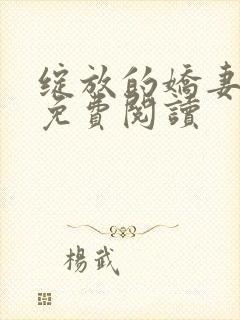 綻放的嬌妻
免費閱讀
楊武